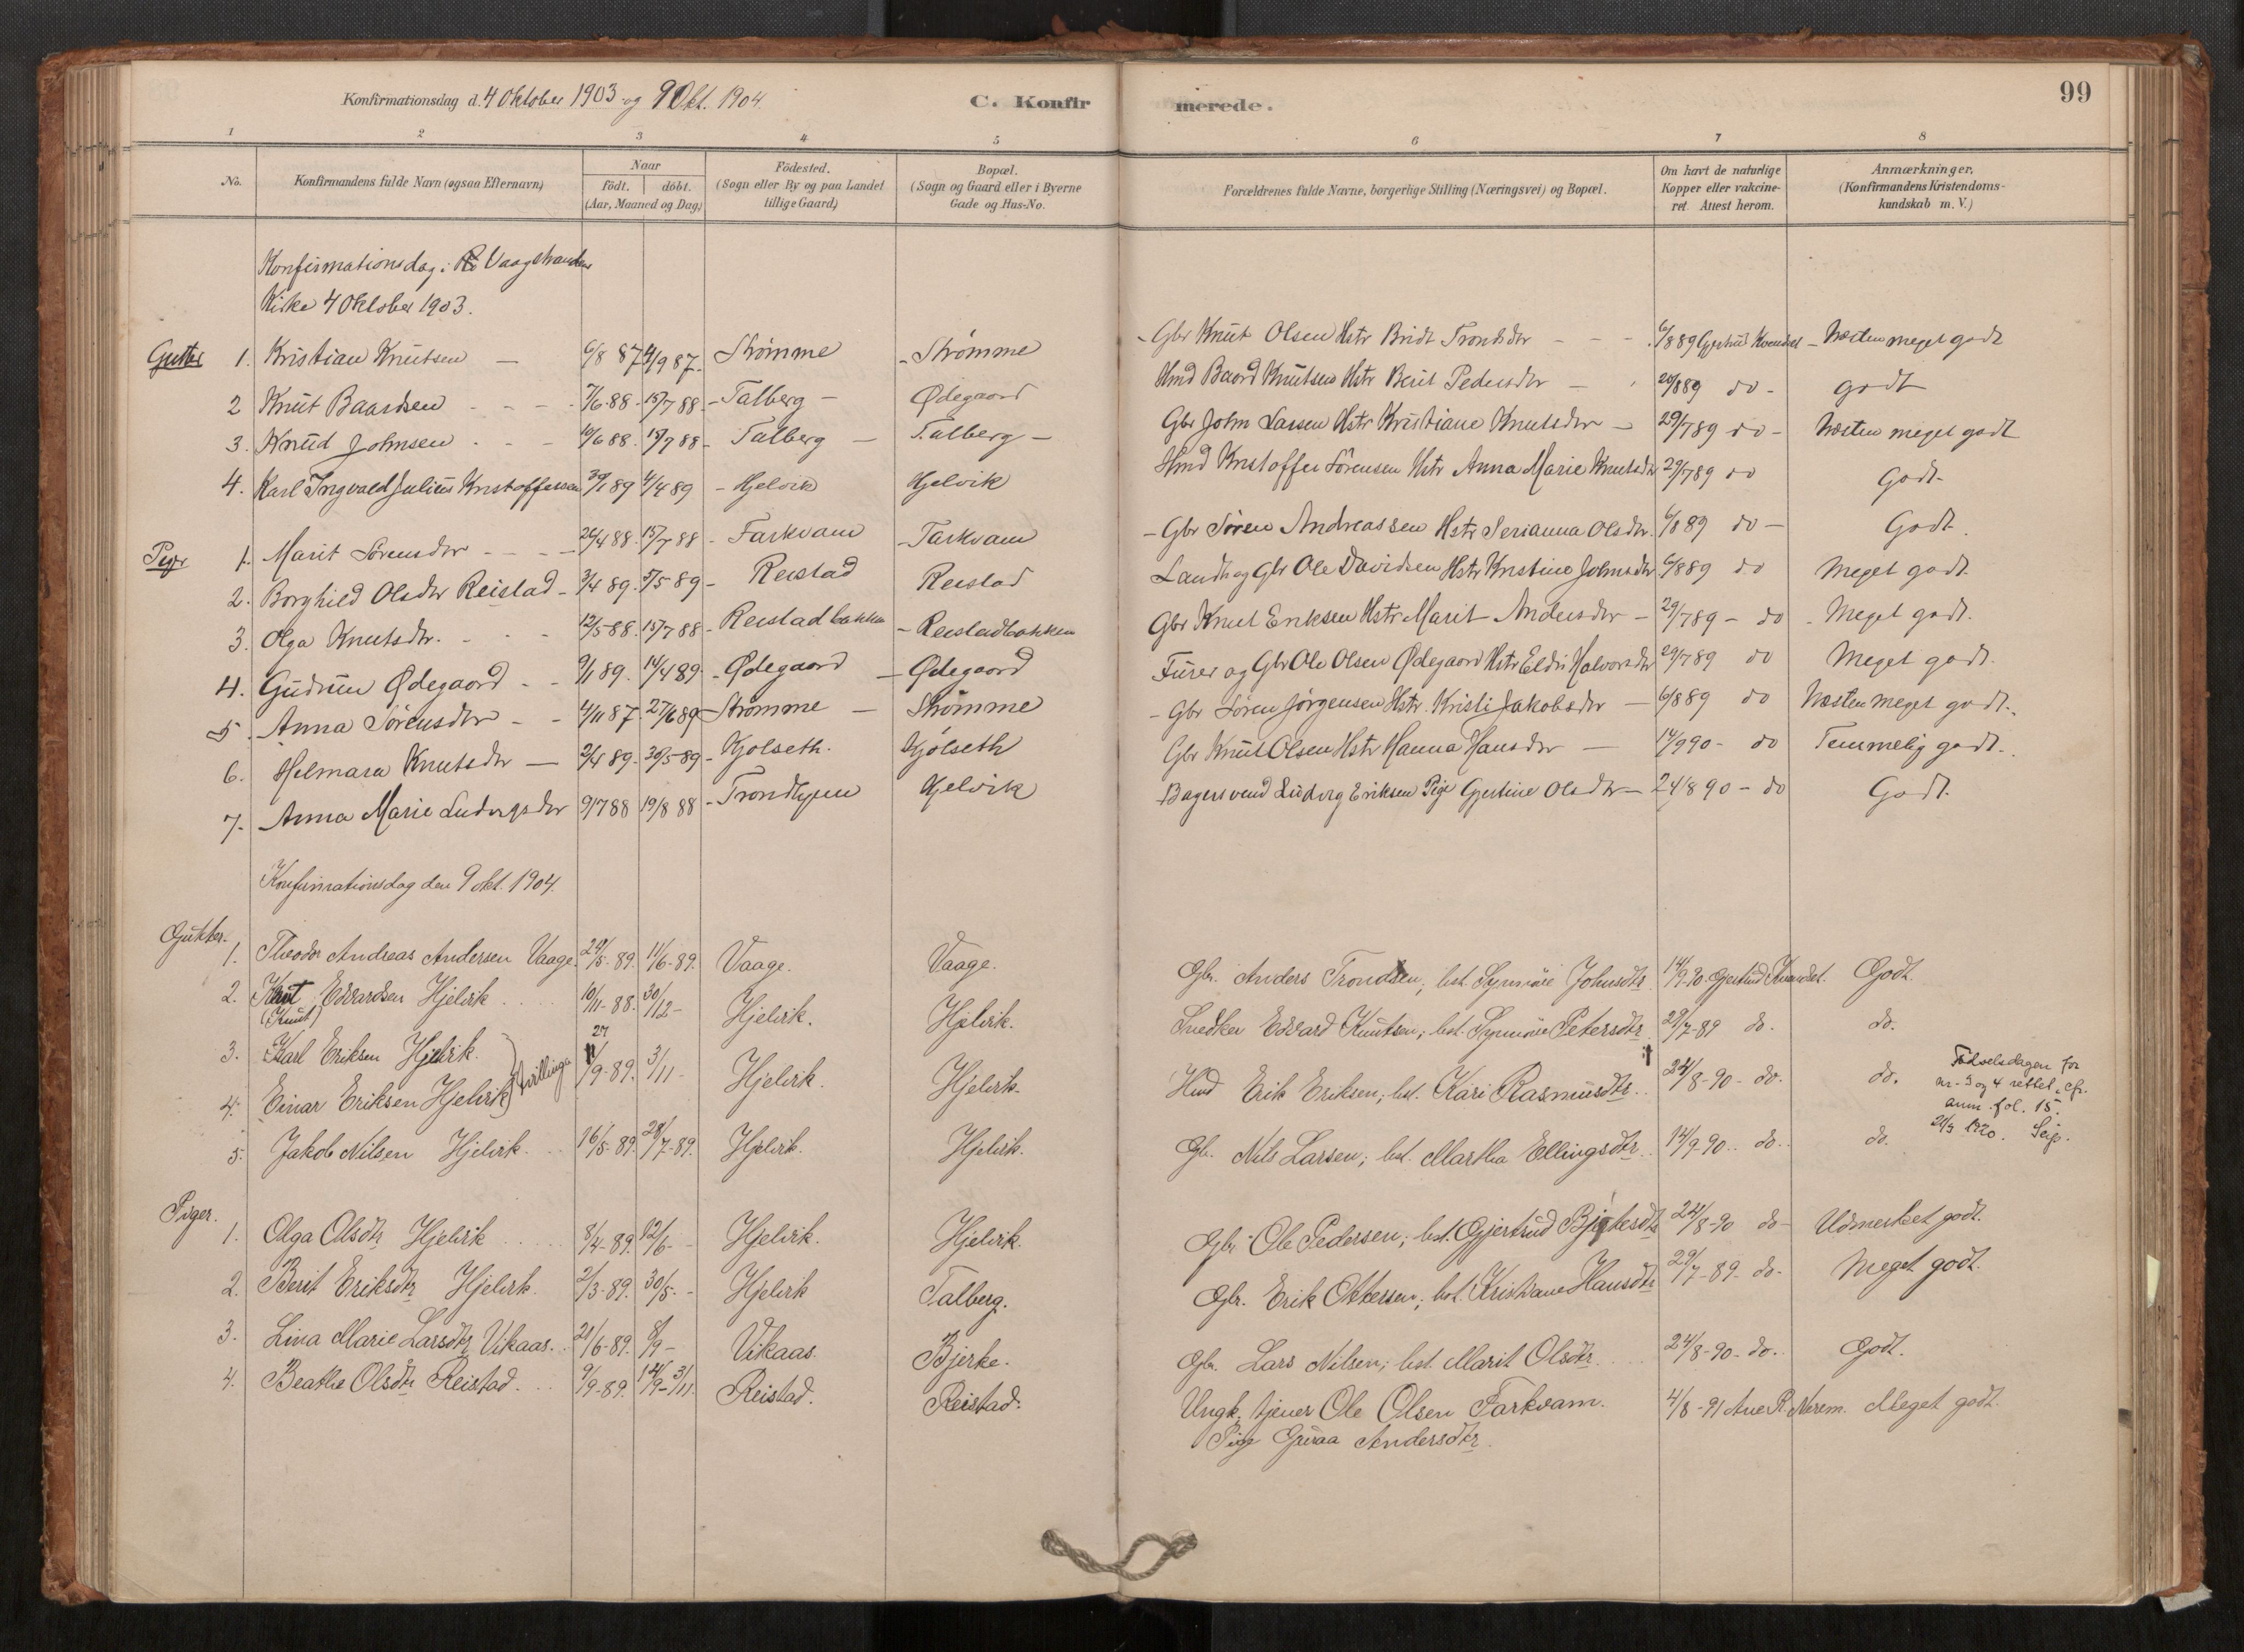 Konfirmationsdag d. 4 Oktober 1903 og 9 Okt. 1904.
C. Konfirmerede.
99
1 2 3 4 5 6 7 8
No.
Konfirmandens fulde Navn (ogsaa Efternavn)
Naar
födt. döbt.
(Aar, Maaned og Dag)
Födested.
(Sogn eller By og paa Landet
tillige Gaard)
Bopæl.
(Sogn og Gaard eller i Byerne
Gade og Hus-No.
Forældrenes fulde Navne, borgerlige Stilling (Næringsvei) og Bopæl.
Om havt de naturlige
Kopper eller vakcine-
ret. Attest herom.
Anmærkninger,
(Konfirmandens Kristendoms-
kundskab m. V.)
Konfirmationsdag i Vaagstrandens
Kirke 4 Oktober 1903.
Gutter 1. Kristian Knutsen — 6/8 87 4/9 87. Strømme - Strømme - Gbr Knut Olsen Hstr Bridt Trondsdtr - - - 6/8 89 - Næsten meget godt
2 Knut Baardsen - - - 7/6 88 - 15/7 88 - Talberg - Ødegaard Hmd Baard Knutsen Hstr Berit Pedersdtr - 20/8 89 do - godt
3. Knud Johnsen - - - 10/6 88. 15/7 88 - Talberg — Talberg - Gbr John Larsen Hstr Kristiane Knutsdtr - 29/7 89 do - Næsten meget godt
4. Karl Ingvald Julius Kristoffersen 30/1 89 4/4 89 - Hjelvik Hjelvik Hmd Kristoffer Sörensen Hstr Anna Marie Knutsdtr 29/7 89 do Godt
Piger 1. Marit Sörensdtr - - - 26/4 88. 15/7 88 - Farkvam - Farkvam - Gbr Sören Andreassen Hstr Serianna Olsdtr. 6/8 89 do - Godt.
2. Borghild Olsdtr Reistad - 3/4 89. 5/5 89 - Reistad Reistad Landh og Gbr Ole Davidsen Hstr Kristine Johnsdtr 6/8 89 do Meget godt.
3. Olga Knutsdtr. - - - 12/5 88. 15/7 88 - Reistadbakken - Reistadbakken Gbr Knut Eriksen Hstr Marit Andersdtr - 29/7 89 - do - Meget godt.
4. Gudrun Ødegaard - - 9/1 89. 14/4 89. - Ødegaard — Ødegaard Furer og Gbr Ole Olsen Ødegaard Hstr Eldri Halvorsdtr 29/7 89 do Meget godt.
5. Anna Sörensdtr - - 4/11 87. 27/6 89 Strømme — Strømme - Gbr Sören Jörgensen Hstr. Kristi Jakobsdtr - 6/8 89 do Næsten meget godt.
6. Helmara Knutsdtr — 2/4 89. 30/5 89 - Kjölseth. Kjölseth Gbr Knut Olsen Hstr Hanna Hansdtr - 14/9 90 - do Temmelig godt.
7. Anna Marie Ludvigsdtr 9/7 88 19/8 88 - Trondhjem Hjelvik Bagersvend Ludvig Eriksen Pige Gjertine Olsdtr - 24/8 90 - do Godt.
Konfirmationsdag den 9 okt. 1904.
Gutter.
1. Theodor Andreas Andersen Vaage. 24/5-89. 11/6-89. Vaage. Vaage. Gbr. Anders Trondsen; hst. Synnöve Johnsdtr. 14/9-90. Godt.
2. Knut Edvardsen Hjelvik . . . 10/11-88. 30/12 - Hjelvik. Hjelvik. Snedker Edvard Knutsen; hst. Synnöve Petersdtr. 29/7-89 do. do.
(Knut)
3. Karl Eriksen Hjelvik. 27/9-89. 3/11 - Hjelvik. Hjelvik. Hmd Erik Eriksen; hst. Kari Rasmusdtr. 24/8-90 - do. do.
4. Einar Eriksen Hjelvik
tvillinger
Födselsdagen for
nr. 3 og 4 rettet, cfr.
anm. fol. 15.
1920.
5. Jakob Nilsen Hjelvik. 16/5-89. 28/7-89. Hjelvik. Hjelvik. Gb. Nils Larsen; hst. Martha Ellingsdtr. 14/9-90.. do.. do.
Piger.
1. Olga Olsdtr Hjelvik . . . 8/4-89. 12/6 - Hjelvik. Hjelvik. Gbr. Ole Pedersen; hst. Gjertrud 24/8-90 do - Udmerket godt.
2. Berit Eriksdtr Hjelvik. 2/3-89. 30/5 - Hjelvik Talberg. Gbr. Erik Ottersen; hst. Kristiane Hansdtr 29/7-89 - do. Meget godt.
3. Lina Marie Larsdtr Vikaas. 21/6-89. 8/9 - Vikaas. Bjerke. Gbr. Lars Nilsen; hst. Marit Olsdtr. 24/8-90 - do. Godt.
4. Beathe Olsdtr Reistad. . . 9/9-89. 14/9 - 3/11. Reistad. Reistad. Ungk. tjener Ole Olsen Farkvam. 4/8-91 Ane R. Nerem. Meget godt.
Pige Guraa Andersdtr.